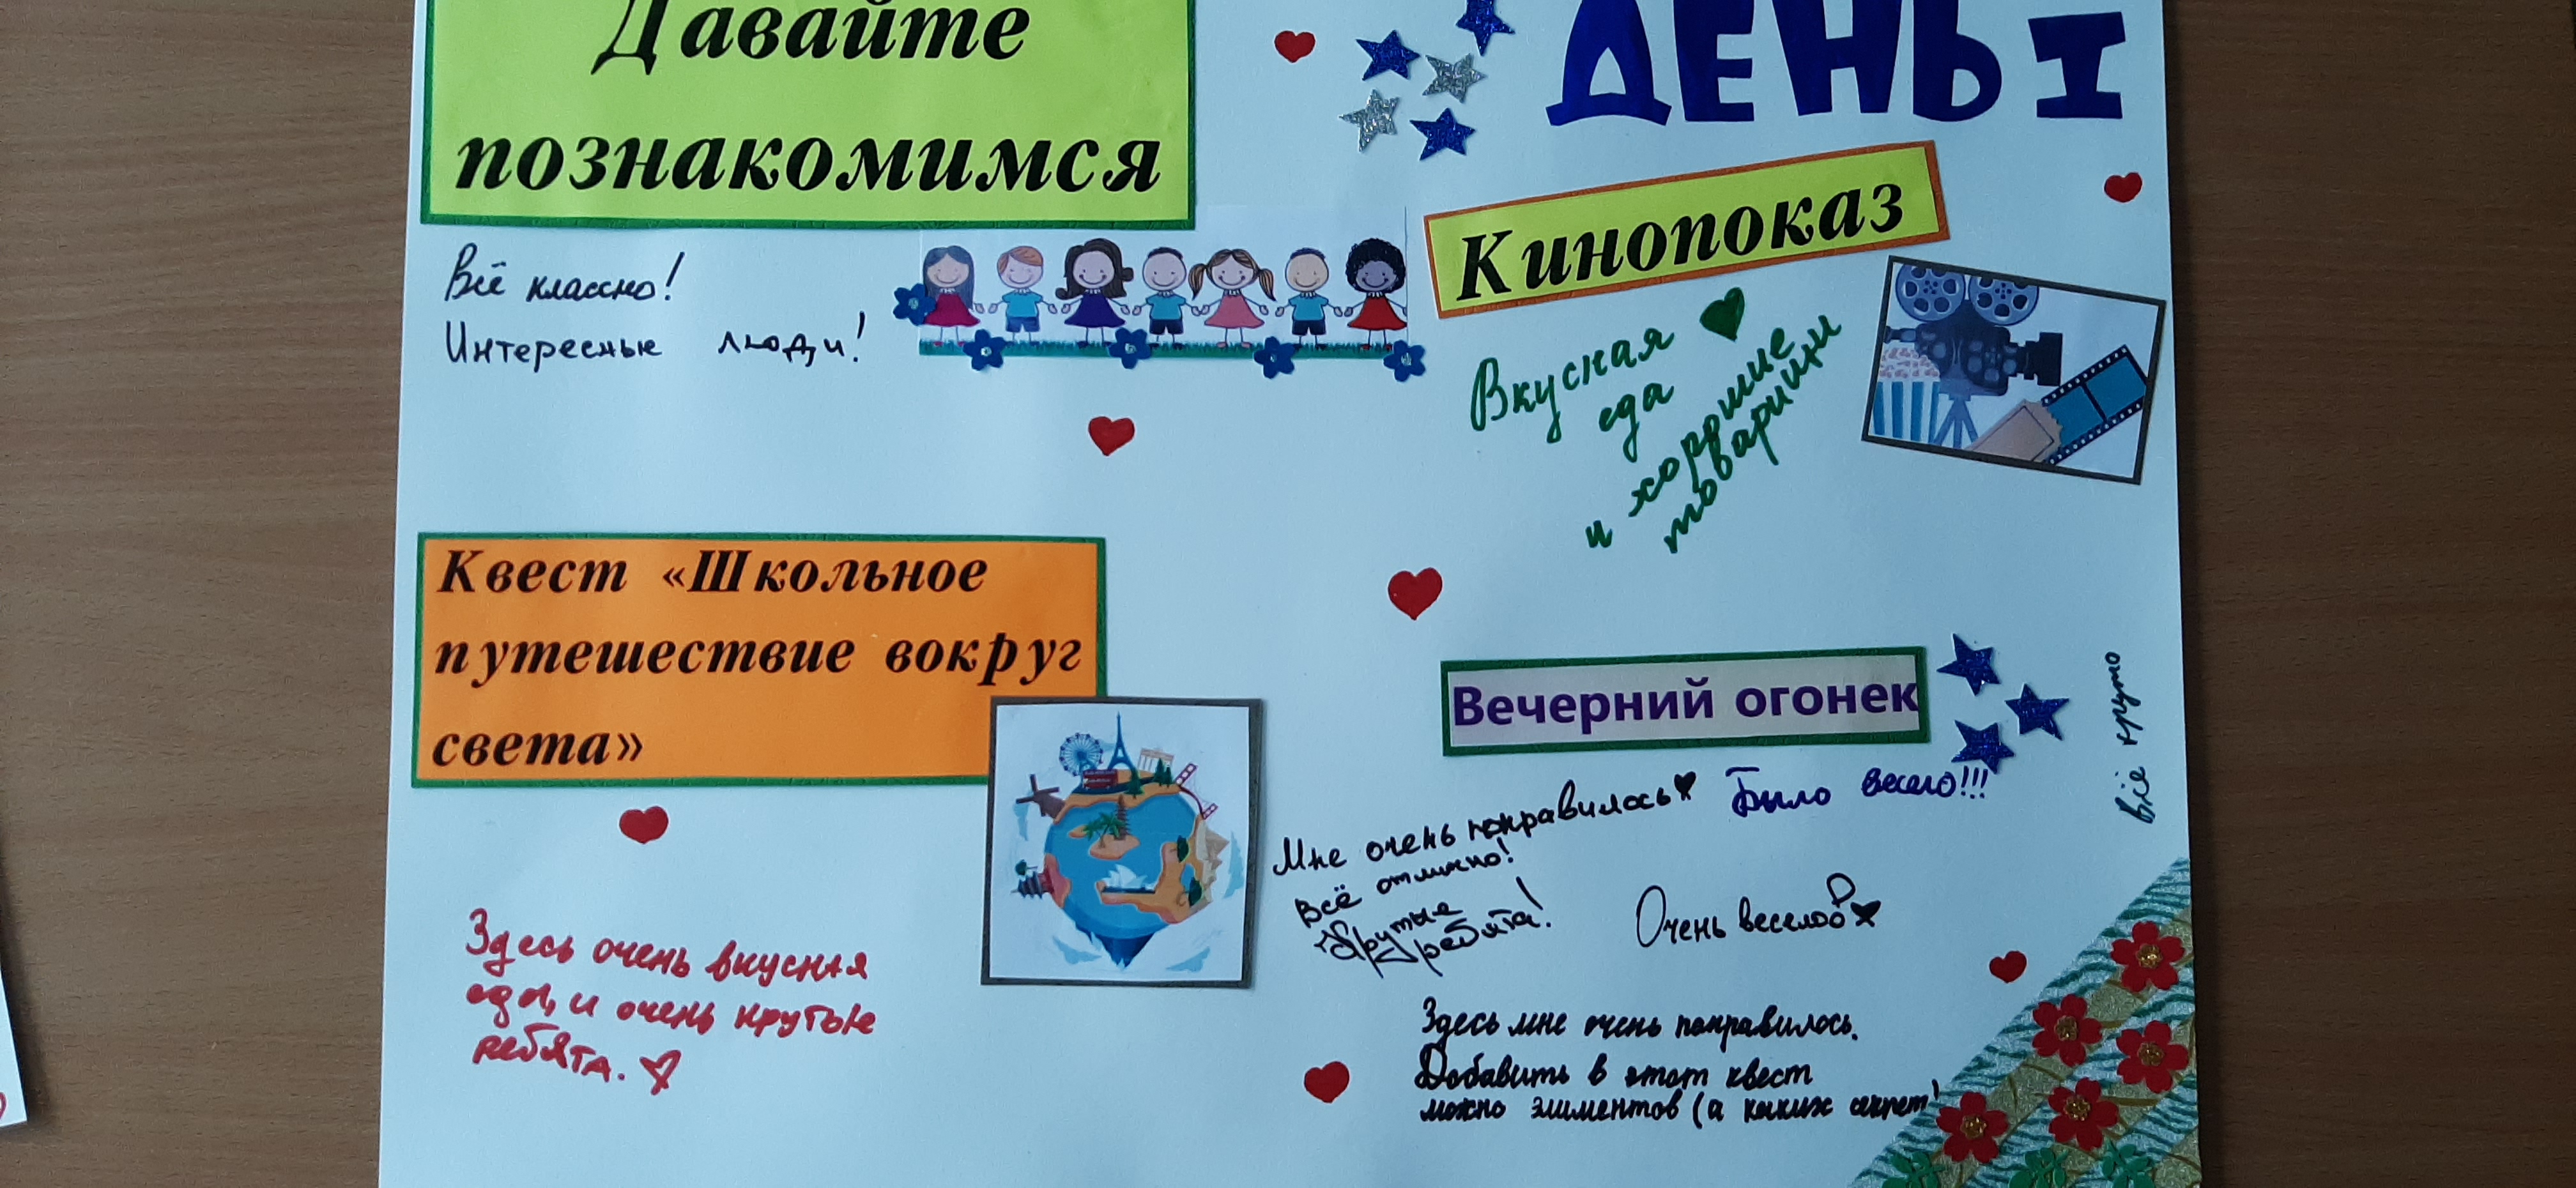 Давайте
познакомимся
Всё классно!
Интересные люди!
ДЕНЬ I
Кинопоказ
Вкусная
еда
и хорошие
товарищи
Квест «Школьное
путешествие вокруг
света»
Здесь очень вкусная
еда, и очень крутые
ребята.
Вечерний огонек
Мне очень понравилось
Было весело!!!
Всё отлично!
Крутые
ребята!
Очень весело
всё круто
Здесь мне очень понравилось.
Добавить в этот квест
можно элиментов (а каких секрет)